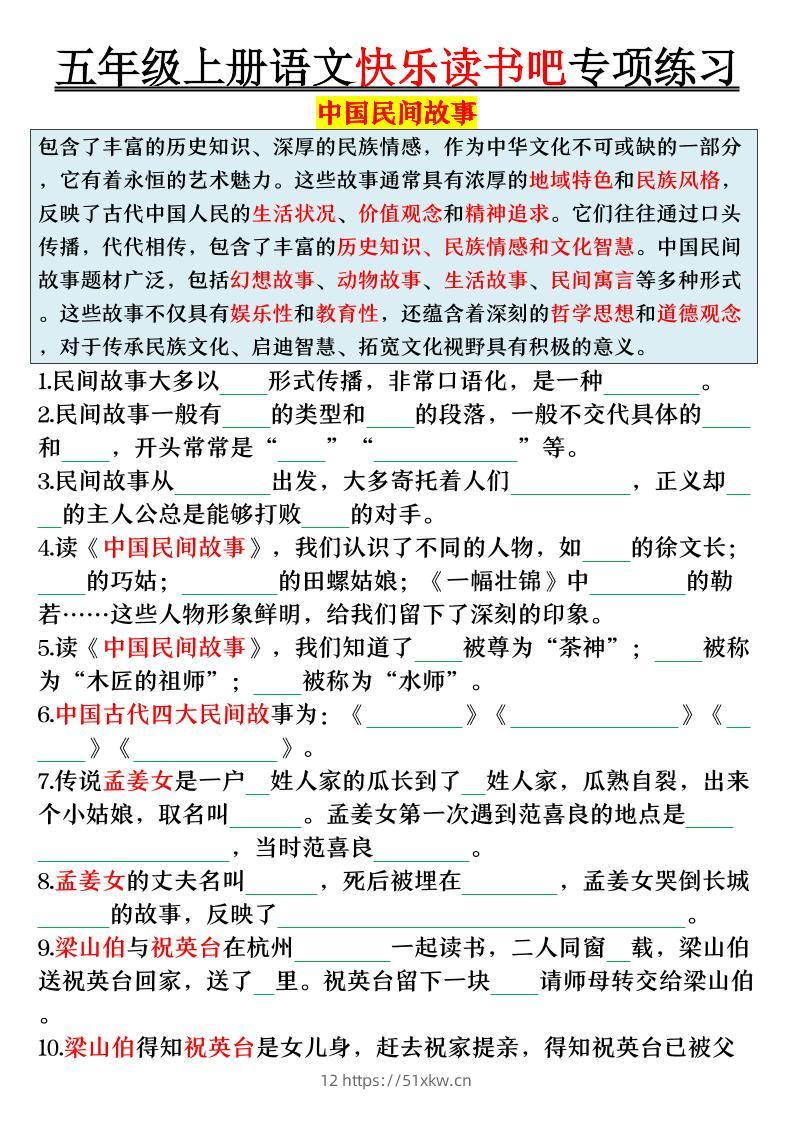 五年级上册语文快乐读书吧专项练习
中国民间故事
包含了丰富的历史知识、深厚的民族情感，作为中华文化不可或缺的一部分
，它有着永恒的艺术魅力。这些故事通常具有浓厚的地域特色和民族风格，
反映了古代中国人民的生活状况、价值观念和精神追求。它们往往通过口头
传播，代代相传，包含了丰富的历史知识、民族情感和文化智慧。中国民间
故事题材广泛，包括幻想故事、动物故事、生活故事、民间寓言等多种形式
。这些故事不仅具有娱乐性和教育性，还蕴含着深刻的哲学思想和道德观念
，对于传承民族文化、启迪智慧、拓宽文化视野具有积极的意义。
1.民间故事大多以____形式传播，非常口语化，是一种________。
2.民间故事一般有____的类型和____的段落，一般不交代具体的____
和____，开头常常是“____”“____________”等。
3.民间故事从________出发，大多寄托着人们__________，正义却__
__的主人公总是能够打败____的对手。
4.读《中国民间故事》，我们认识了不同的人物，如____的徐文长；
____的巧姑；________的田螺姑娘；《一幅壮锦》中________的勒
若……这些人物形象鲜明，给我们留下了深刻的印象。
5.读《中国民间故事》，我们知道了____被尊为“茶神”；____被称
为“木匠的祖师”；____被称为“水师”。
6.中国古代四大民间故事为：《________》《______________》《__
____》《____________》。
7.传说孟姜女是一户__姓人家的瓜长到了__姓人家，瓜熟自裂，出来
个小姑娘，取名叫______。孟姜女第一次遇到范喜良的地点是____
________________，当时范喜良________。
8.孟姜女的丈夫名叫______，死后被埋在________，孟姜女哭倒长城
______的故事，反映了__________________________________。
9.梁山伯与祝英台在杭州________一起读书，二人同窗__载，梁山伯
送祝英台回家，送了__里。祝英台留下一块____请师母转交给梁山伯
。
10.梁山伯得知祝英台是女儿身，赶去祝家提亲，得知祝英台已被父
12 https://51xkw.cn